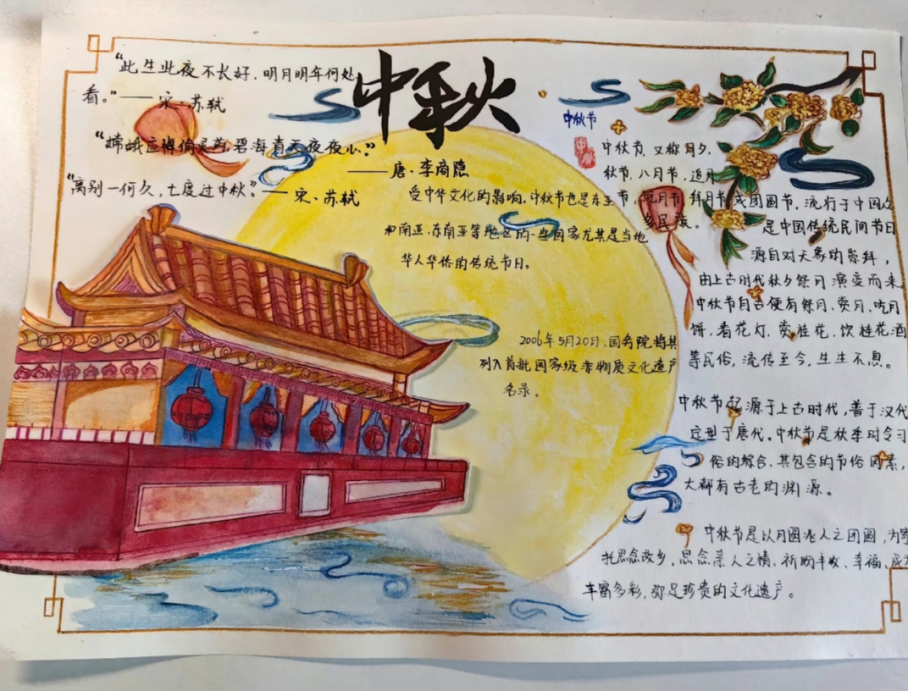 中秋
“此生此夜不长好，明月明年何处
看。”——宋·苏轼
“嫦娥应悔偷灵药，碧海青天夜夜心。”
——唐·李商隐
“离别一何久，七度过中秋。”——宋·苏轼
受中华文化的影响，中秋节也是东亚
和南亚、东南亚等地区的一些国家尤其是当地
华人华侨的传统节日。
2006年5月20日，国务院将其
列入首批国家级非物质文化遗产
名录。
中秋节
中秋节，又称月夕，
秋节，八月节，追月
节，玩月节，拜月节或团圆节，流行于中国众
多民族。
是中国传统民间节日
源自对天象的崇拜，
由上古时代秋夕祭月演变而来
中秋节自古便有祭月，赏月，吃月
饼，看花灯，赏桂花，饮桂花酒
等民俗，流传至今，生生不息。
中秋节起源于上古时代，善于汉代
定型于唐代。中秋节是秋季时令习
俗的综合，其包含的节俗因素，
大都有古老的渊源。
中秋节是以月圆兆人之团圆，为寄
托思念故乡，思念亲人之情，祈盼丰收、幸福，成为
丰富多彩，弥足珍贵的文化遗产。